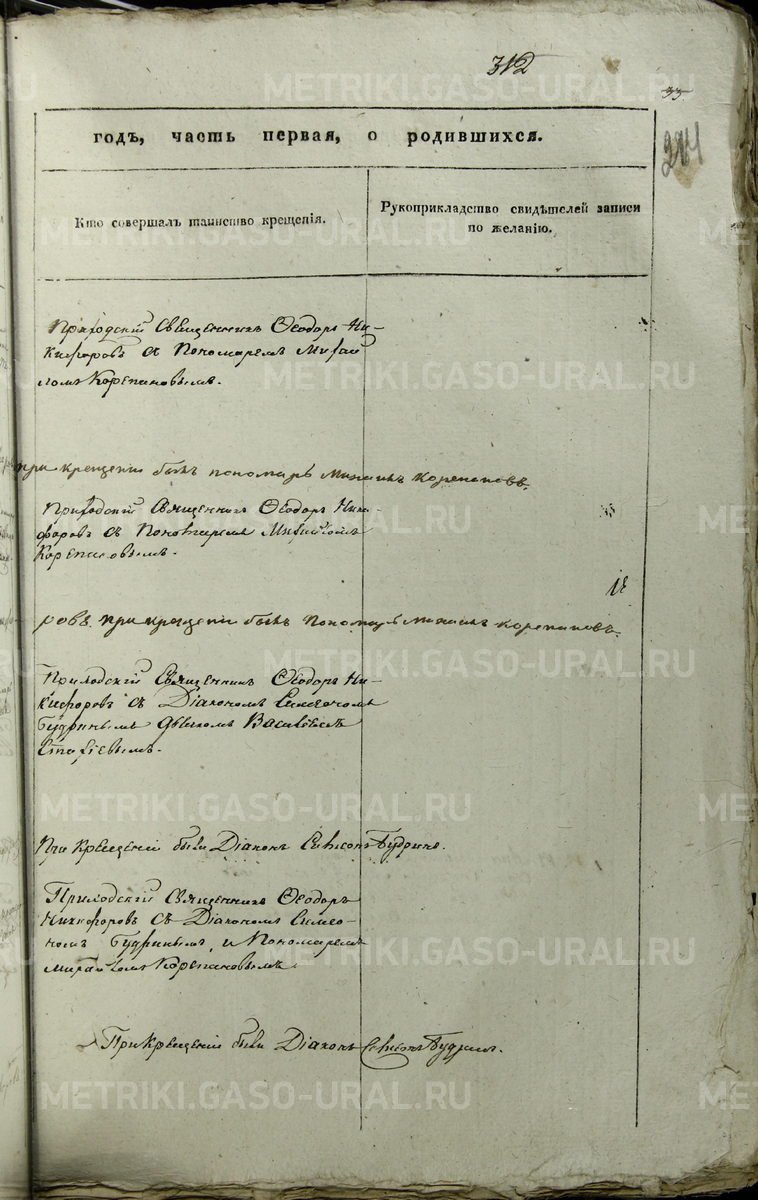 312
33
291
годъ, часть первая, о родившихся.
Кто совершалъ таинство крещенія.
Рукоприкладство свидѣтелей записи
по желанію.
Приходскій Священникъ Ѳеодоръ Ни-
кифоровъ съ Пономаремъ Михаи
ломъ Корепановымъ.
при крещеніи былъ пономарь Михаилъ Корепановъ.
Приходскій Священникъ Ѳеодоръ Ники-
форовъ съ Пономаремъ Михаиломъ
Корепановымъ.
ровъ при крещеніи былъ Пономарь Михаилъ Корепановъ.
Приходскій Священникъ Ѳеодоръ Ни-
кифоровъ съ Діакономъ Симеономъ
Будринымъ Дьячкомъ Василіемъ
При крещеніи были Діаконъ Симеонъ Будринъ.
Приходскій Священникъ Ѳеодоръ
Никифоровъ съ Діакономъ Симео-
номъ Будринымъ, и Пономаремъ
Михаиломъ Корепановымъ
При крещеніи были Діаконъ Симеонъ Будринъ.
METRIKI.GASO-URAL.RU